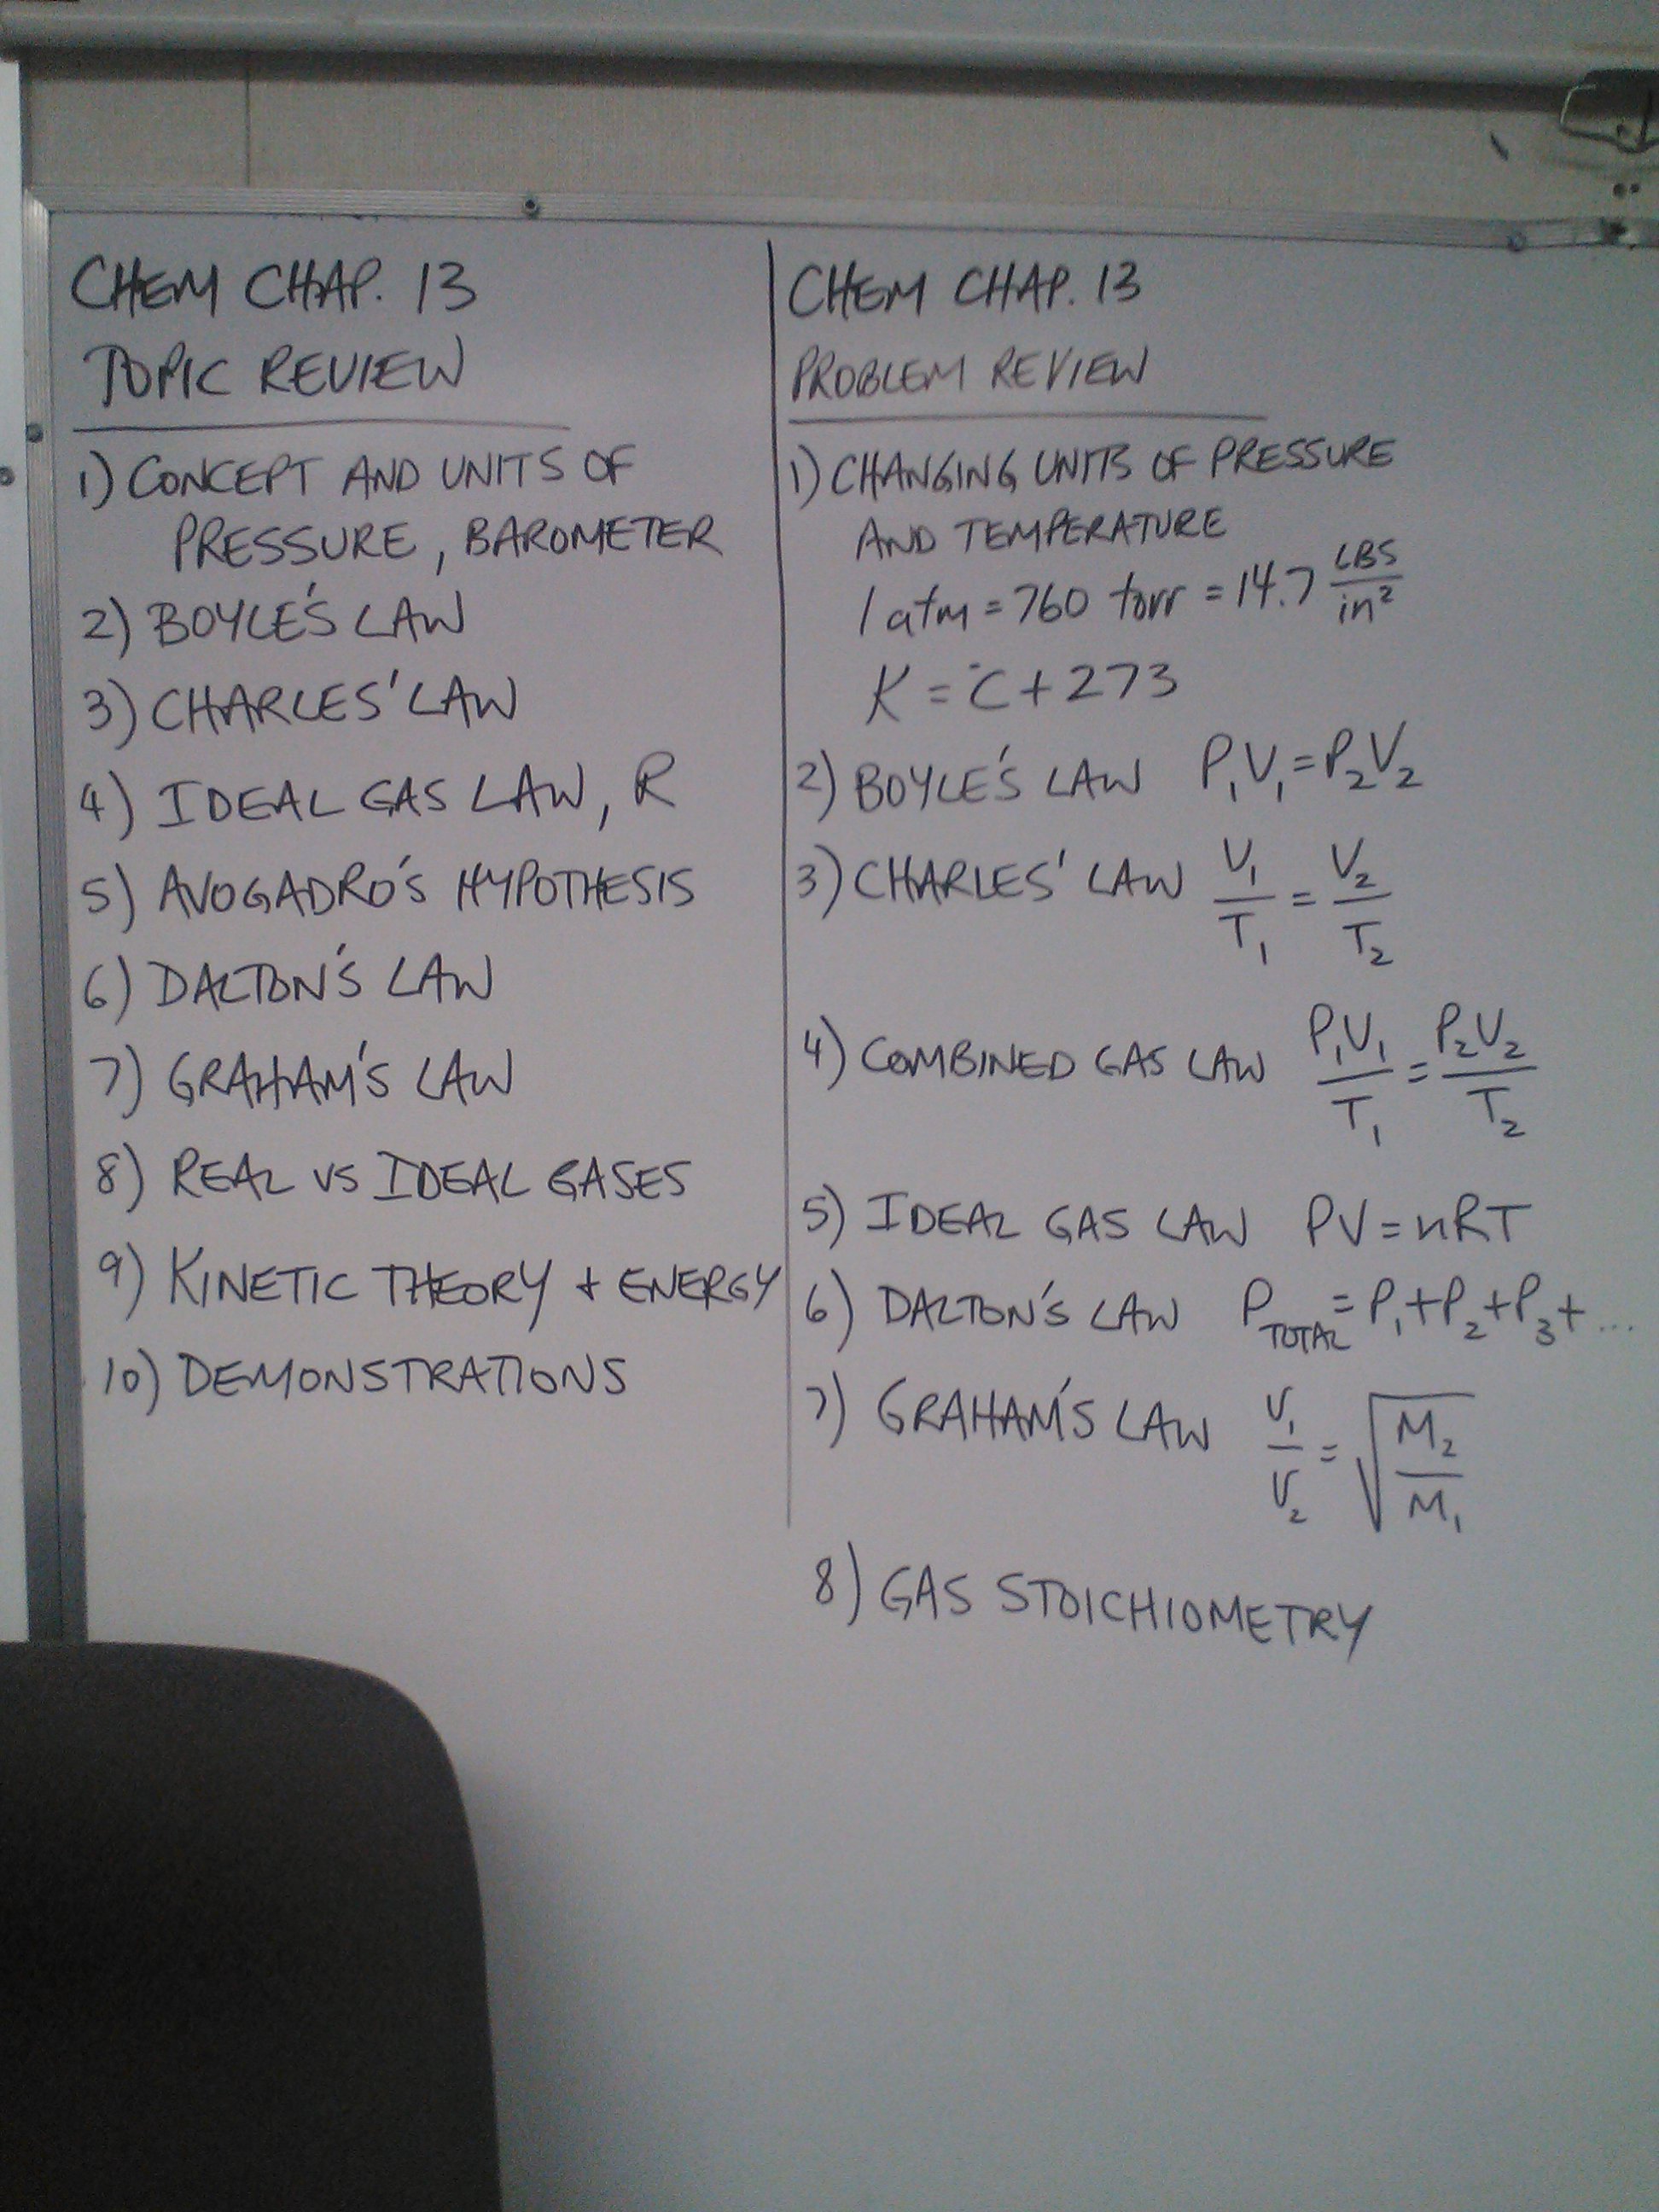 CHEM CHAP. 13
TOPIC REVIEW
1) CONCEPT AND UNITS OF
PRESSURE, BAROMETER
2) BOYLE'S LAW
3) CHARLES' LAW
4) IDEAL GAS LAW, R
5) AVOGADRO'S HYPOTHESIS
6) DALTON'S LAW
7) GRAHAM'S LAW
8) REAL VS IDEAL GASES
9) KINETIC THEORY + ENERGY
10) DEMONSTRATIONS
CHEM CHAP. 13
PROBLEM REVIEW
1) CHANGING UNITS OF PRESSURE
AND TEMPERATURE
1 atm = 760 torr = 14.7 LBS/in²
K = °C + 273
2) BOYLE'S LAW P₁V₁ = P₂V₂
3) CHARLES' LAW V₁/T₁ = V₂/T₂
4) COMBINED GAS LAW P₁V₁/T₁ = P₂V₂/T₂
5) IDEAL GAS LAW PV = nRT
6) DALTON'S LAW P TOTAL = P₁ + P₂ + P₃ + ...
7) GRAHAM'S LAW V₁/V₂ = √(M₂/M₁)
8) GAS STOICHIOMETRY